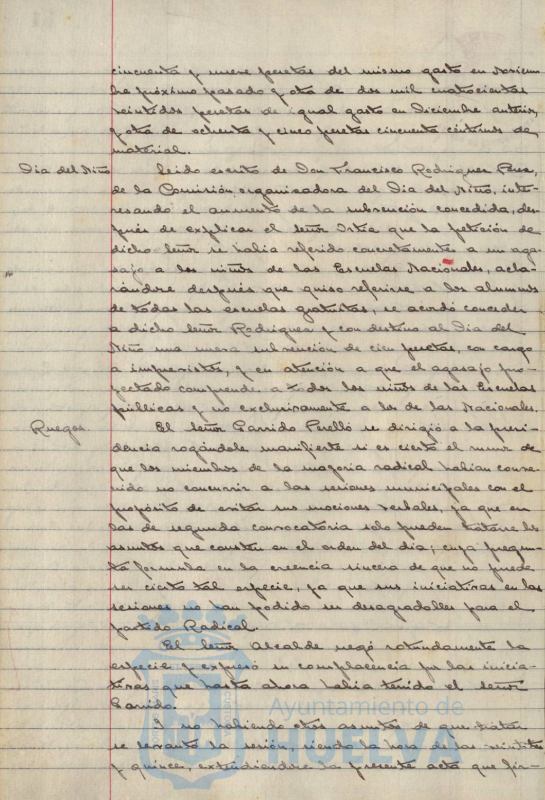 cincuenta y nueve pesetas del mismo gasto en Noviem-
bre próximo pasado y otra de dos mil cuatrocientas
veintidos pesetas de igual gasto en Diciembre anterior,
y otra de ochenta y cinco pesetas cincuenta céntimos de
material.
Dia del Niño
Leido escrito de Don Francisco Rodriguez Perez,
de la Comisión organizadora del Dia del Niño, inte-
resando el aumento de la subvención concedida, des-
pués de explicar el señor Ortia que la petición de
dicho señor se habia referido concretamente a un aga-
sajo a los niños de las Escuelas Nacionales, acla-
rándose después que quiso referirse a los alumnos
de todas las escuelas gratuitas, se acordó conceder
a dicho señor Rodriguez y con destino al Dia del
Niño una nueva subvención de cien pesetas, con cargo
a imprevistos, y en atención a que el agasajo pro-
yectado comprende a todos los niños de las Escuelas
públicas y no exclusivamente a los de las Nacionales.
Ruegos.
El señor Garrido Perelló se dirigió a la presi-
dencia rogándole manifieste si es cierto el rumor de
que los miembros de la mayoria radical habian conve-
nido no concurrir a las sesiones municipales con el
propósito de evitar sus mociones verbales, ya que en
las de segunda convocatoria solo pueden tratarse los
asuntos que consten en el orden del dia; cuya pregun-
ta formula en la creencia sincera de que no puede
ser cierta tal especie, ya que sus iniciativas en las
sesiones no han podido ser desagradables para el
partido Radical.
El señor Alcalde negó rotundamente la
especie y expresó su complacencia por las inicia-
tivas que hasta ahora habia tenido el señor
Garrido.
Y no habiendo otros asuntos de que tratar
se levantó la sesión, siendo la hora de las veintitres
y quince, extendiéndose la presente acta que fir-
Ayuntamiento de
HUELVA